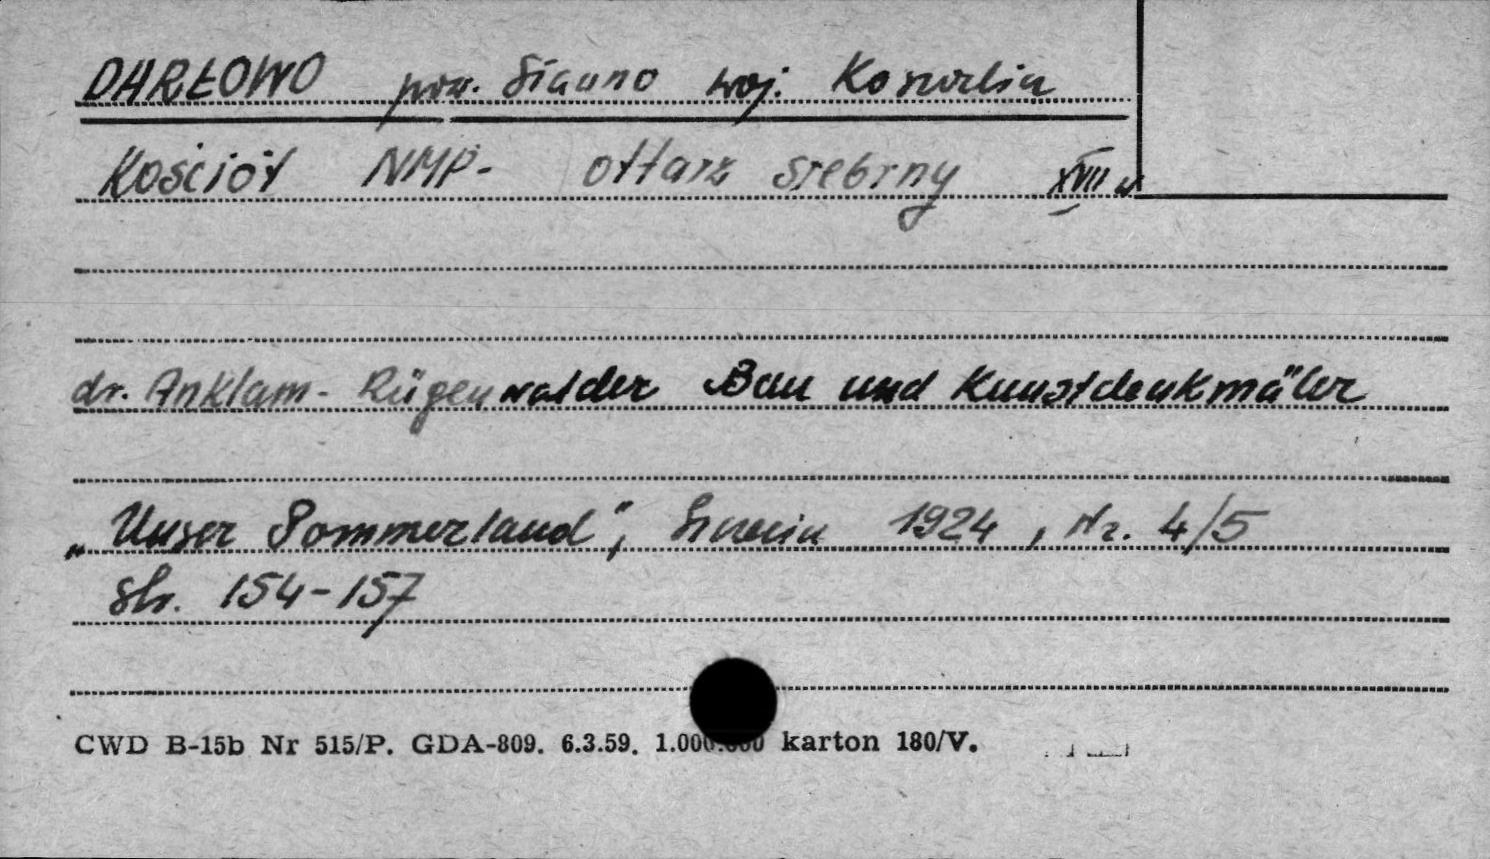 DARŁOWO pow. Sławno woj. Koszalin
Kościół NMP- ołtarz srebrny XVII w
dr. Anklam- Rügenwalder Bau und Kunstdenkmäler
„Unser Pommerland", 1924, Nr. 4/5
Str. 154-157
CWD B-15b Nr 515/P. GDA-809. 6.3.59. 1.000.000 karton 180/V.